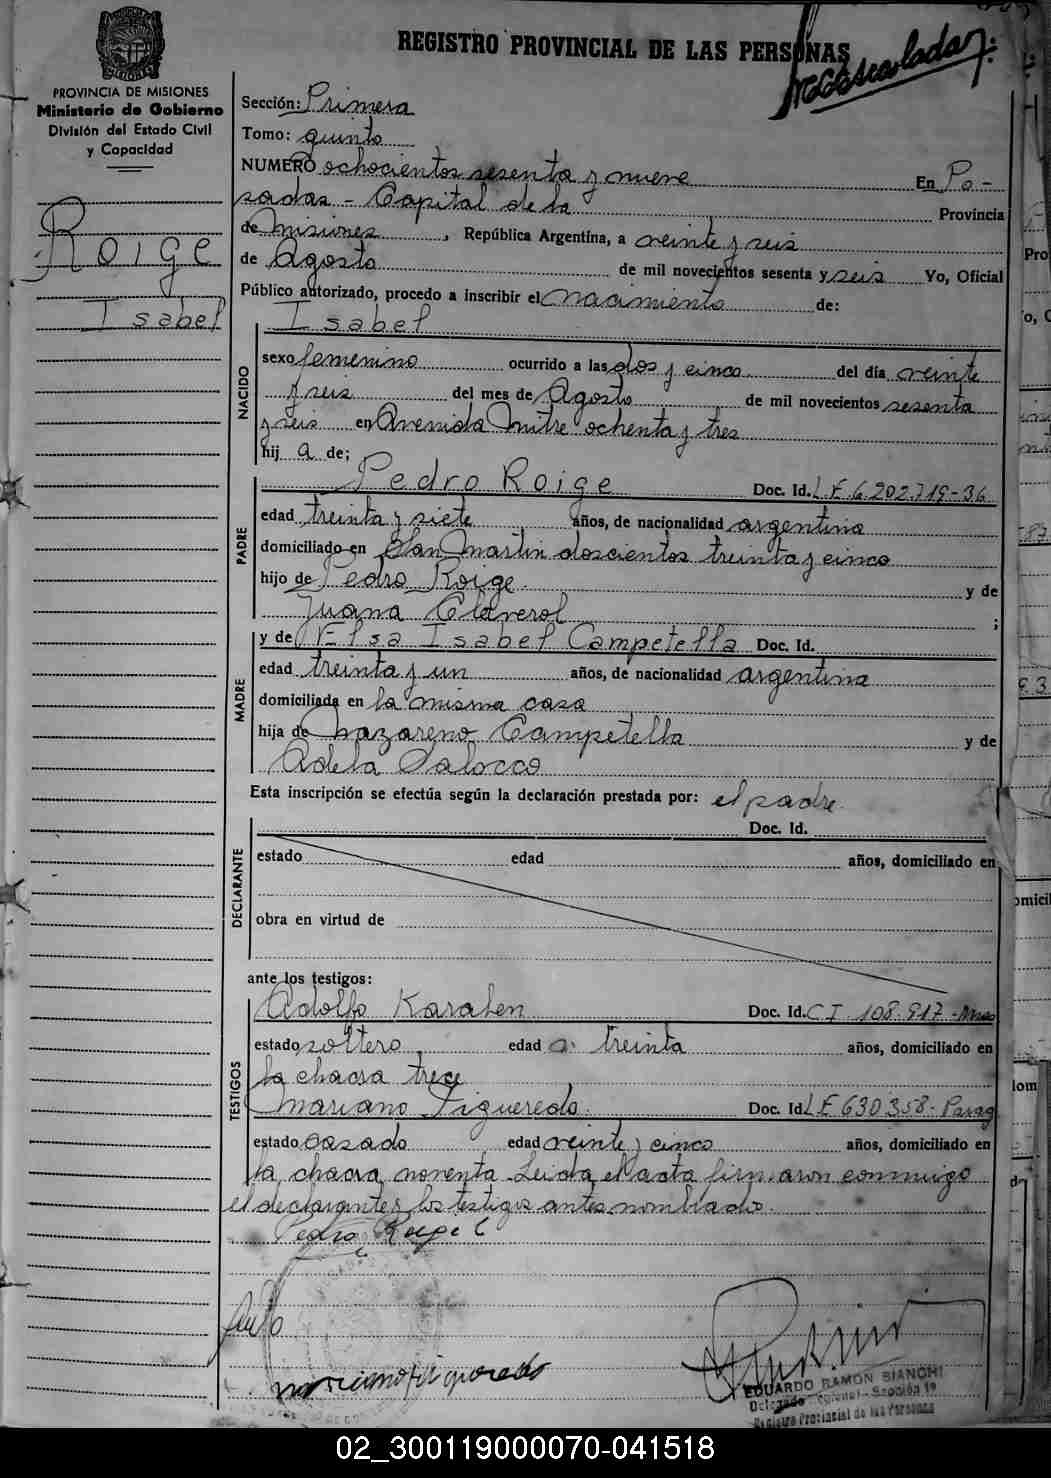 REGISTRO PROVINCIAL DE LAS PERSONAS
PROVINCIA DE MISIONES
Ministerio de Gobierno
División del Estado Civil
y Capacidad
Roige
Isabel
Sección: Primera
Tomo: quinto
NUMERO ochocientos sesenta y nueve En Po-
sadas - Capital de la Provincia
de Misiones, República Argentina, a veinte y seis
de Agosto de mil novecientos sesenta y seis Yo, Oficial
Público autorizado, procedo a inscribir el nacimiento de:
Isabel
NACIDO
sexo femenino ocurrido a las dos y cinco del día veinte
y seis del mes de Agosto de mil novecientos sesenta
y seis en Avenida Mitre ochenta y tres
hij a de;
Pedro Roige Doc. Id. L E 6.202.719-36
PADRE
edad treinta y siete años, de nacionalidad argentina
domiciliado en San Martin doscientos treinta y cinco
hijo de Pedro Roige y de
Juana Claverol ;
y de Elsa Isabel Campetella Doc. Id.
MADRE
edad treinta y un años, de nacionalidad argentina
domiciliada en la misma casa
hija de Nazareno Campetella y de
Adela Salocco
Esta inscripción se efectúa según la declaración prestada por: el padre.
Doc. Id.
DECLARANTE
estado edad años, domiciliado en
obra en virtud de
ante los testigos:
Adolfo Karaben Doc. Id. C I 108.917-
TESTIGOS
estado soltero edad treinta años, domiciliado en
la chacra trece
Mariano Figueredo. Doc. Id. L E 630358- Parag
estado casado edad veinte y cinco años, domiciliado en
la chacra noventa. Leida el acta firmaron conmigo
el declarante y los testigos antes nombrados.
Pedro Roige C
mariano figueredo
EDUARDO RAMON BIANCHI
Delegado Regional - Sección 1ª
Registro Provincial de las Personas
02_300119000070-041518